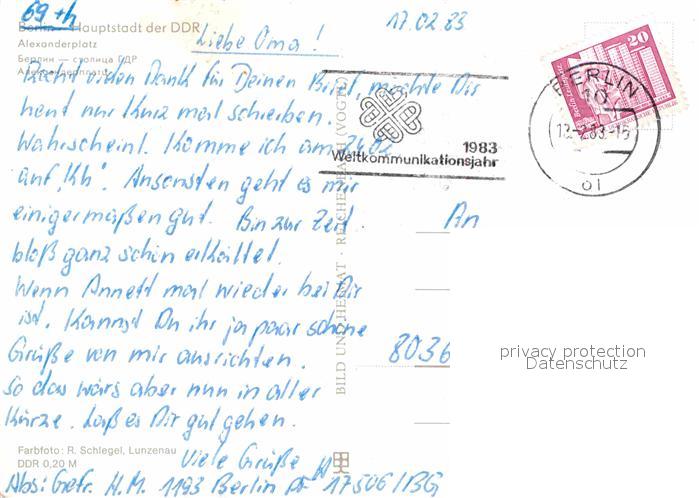 69 + h
Berlin - Hauptstadt der DDR
Alexanderplatz
Берлин — столица ГДР
Александерплатц
17.02.83
Liebe Oma!
Recht vielen Dank für Deinen Brief, möchte Dir
heut nur kurz mal schreiben.
Wahrscheinl. komme ich am 24.02
auf "Kh". Ansonsten geht es mir
einigermaßen gut. Bin zur Zeit
bloß ganz schön erkältet.
Wenn Annett mal wieder bei Dir
ist. Kannst Du ihr ja paar schöne
Grüße von mir ausrichten.
So das wärs aber nun in aller
Kürze. Laß es Dir gut gehen.
Viele Grüße
Abs: Gefr. H.M. 1193 Berlin PF 17506/BG
Farbfoto: R. Schlegel, Lunzenau
DDR 0,20 M
BILD UND HEIMAT · REICHENBACH (VOGTL)
1983
Weltkommunikationsjahr
BERLIN
20
An
8036
privacy protection
Datenschutz